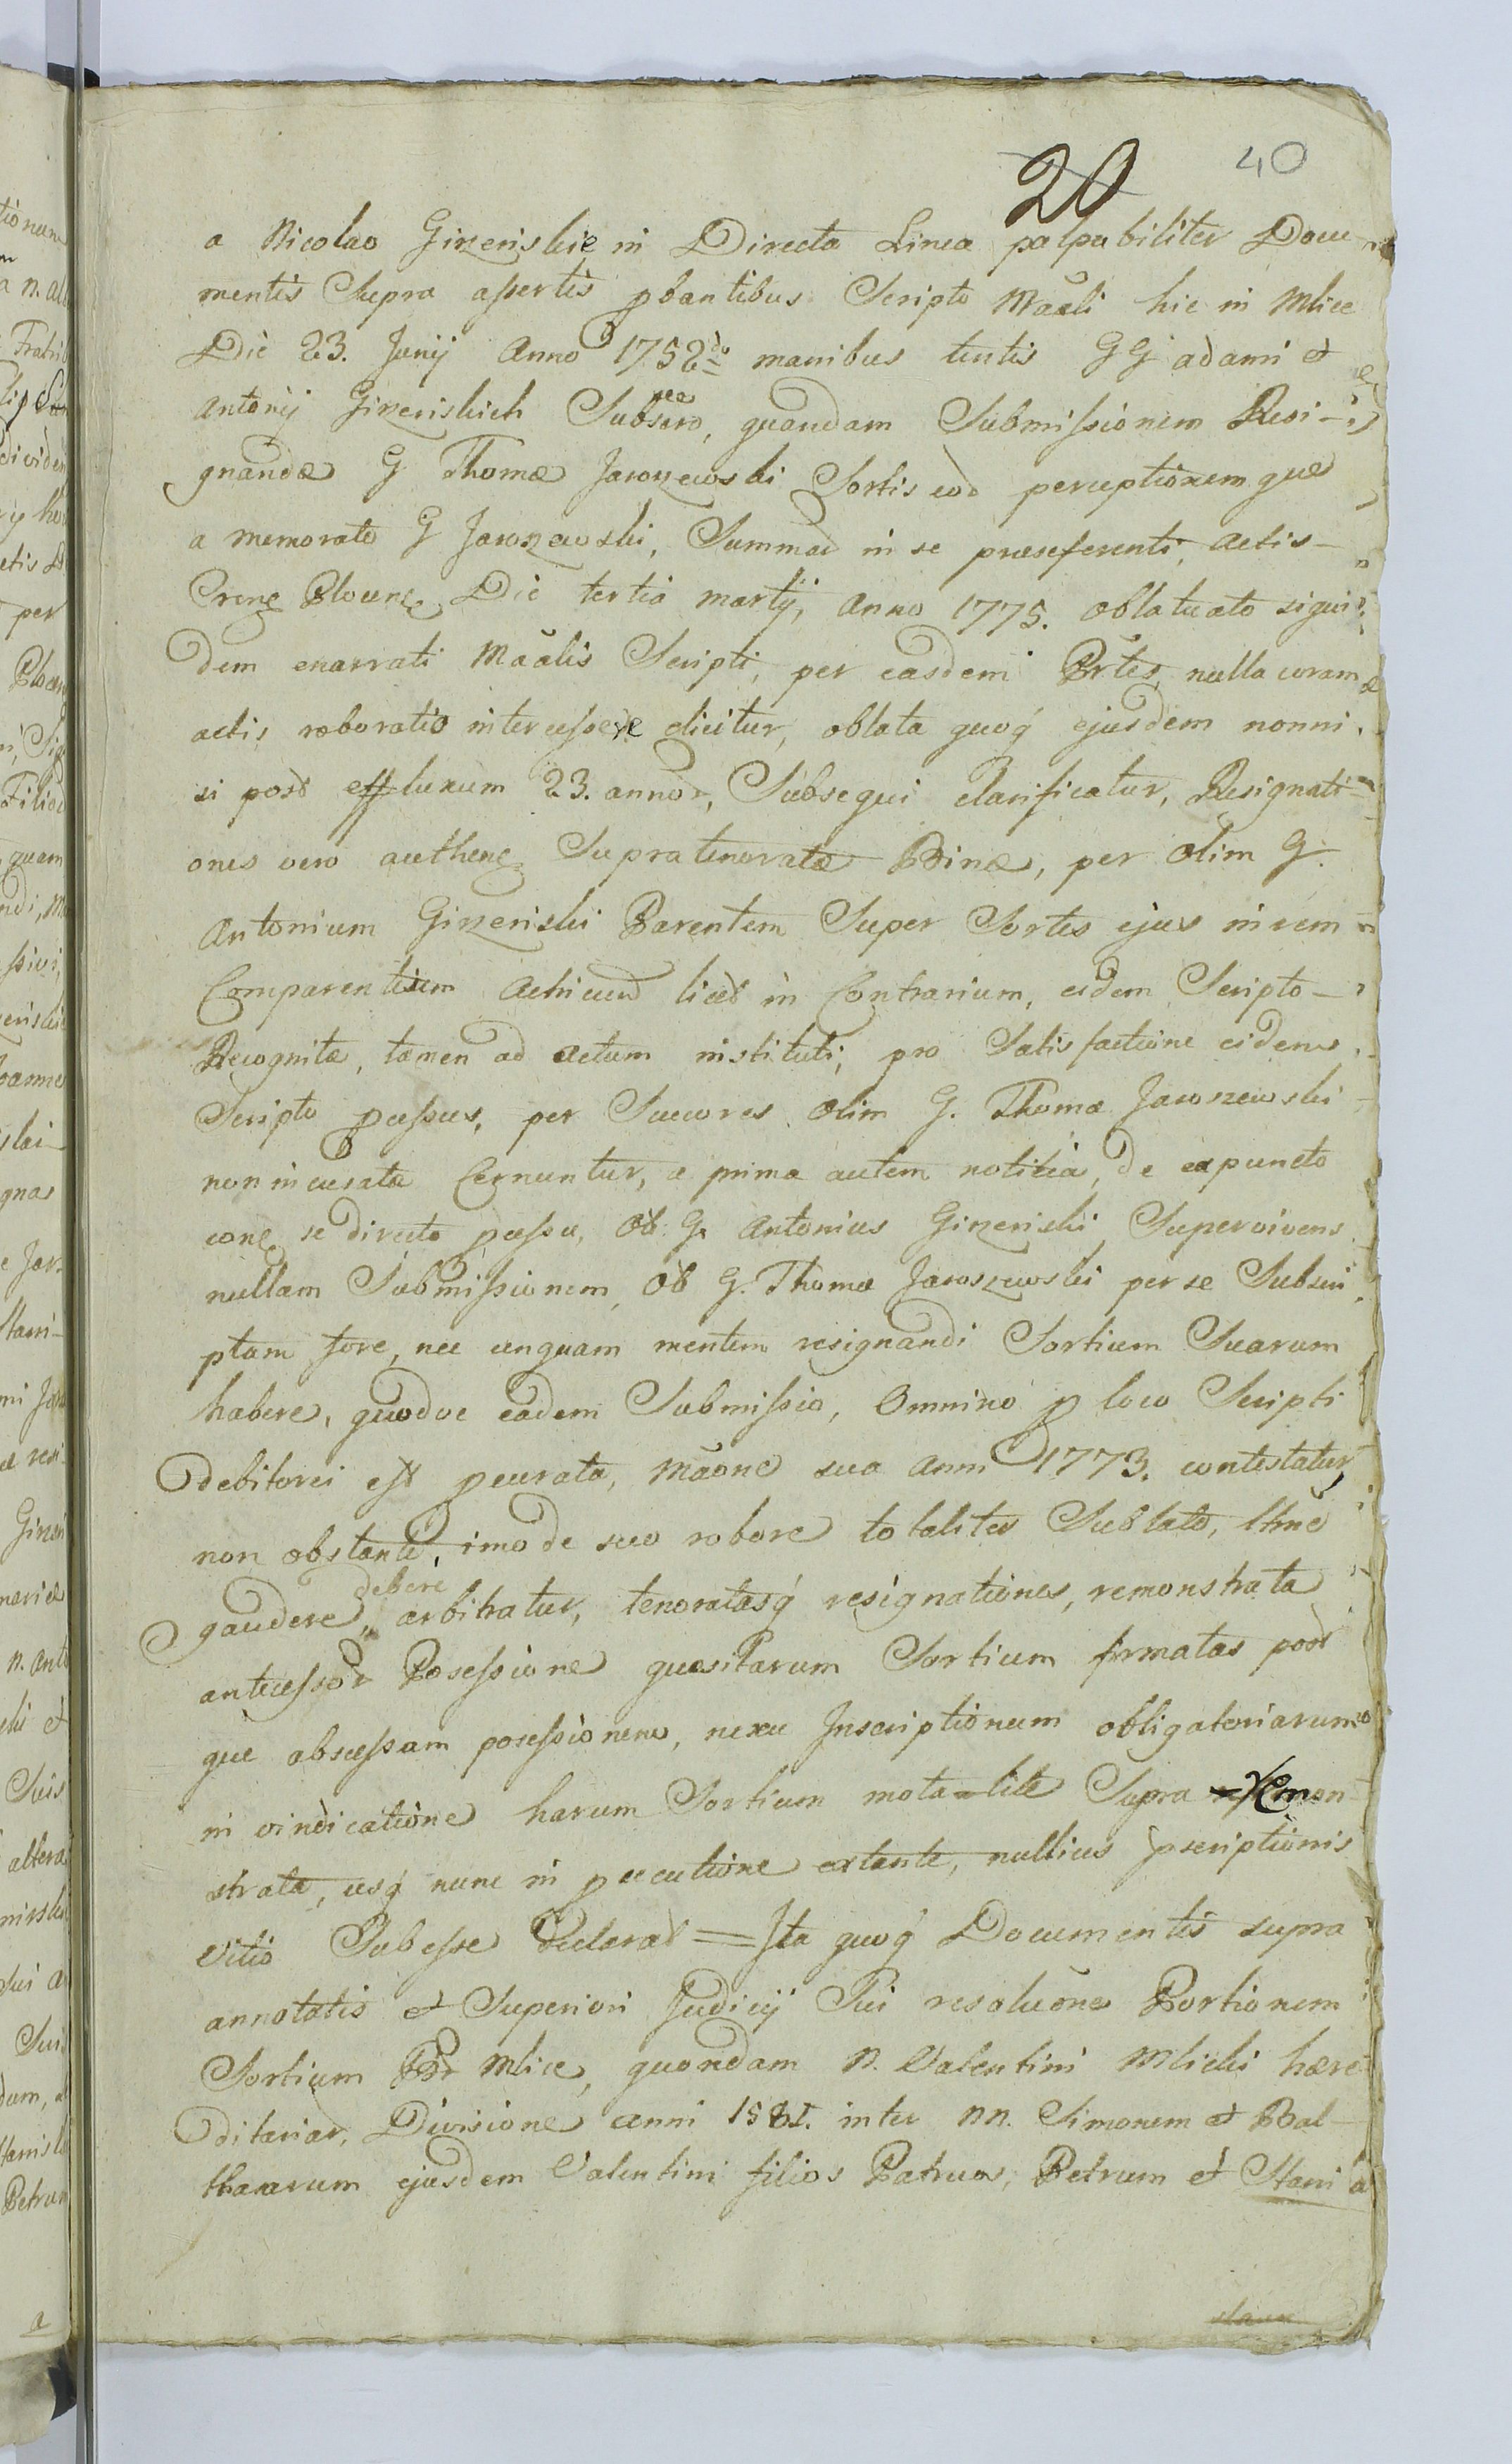 20 40
a Nicolao Gizeriskie in Directa Linea palpabiliter Docu-
mentis Supra assertis pbantibus Scripto Maãli hic in Mlice
Die 23. Junij Anno 1752do manibus tentis GG adami et
Antonij Gizeriskich Subscro, quandam Submissionem Resi-
gnandæ G Thomæ Jaroszewski Sortis eod perceptionemque
a memorato G Jaroszewski, Summæ in se præseferenti, Actis
Crens Plocens Die tertia martij, Anno 1775. oblatuato siqui-
dem enarrati Maãlis Scripti, per easdem Prtes, nulla coram
actis roboratio intercessere dicitur, oblata quoq ejusdem nonni.
si post effluxum 23. annor, Subsequi clarificatur, Resignati-
ones vero authene Supratenoratæ Binæ, per olim G.
Antonium Gizeriski Parentem Super Sortes ejus in rem
Comparentium licet in Contrarium, eidem Scripto
Recognitæ, tamen ad actum instituti, pro Satisfactione eidem
Scripto pcessus, per Succores olim G. Thoma Jaroszewski
non incusatæ Cernuntur, a prima autem noticia, de expuncto
cone se directo pcessu, Ol: G. Antonius Gizeriski Supervivens
nullam Submissionem, Ol G. Thomæ Jaroszewski per se Subscri
ptam fore, nec unquam mentem resignandi Sortium Suarum
habere, quodve eadem Submissio, Omnino p loco Scripti
debitorei est pcurata, mãone sua anni 1773. contestatur,
non obstante, imo de suo robore totaliter Sublato,
debere
gaudere, arbitratur, tenoratasq resignationes, remonstrata
antecessor Posessione quæsitarum Sortium firmatas post
que abscessam posessionem, nexu Inscriptionum obligatoriarum
in vindicatione harum Sortium mota lite Supra remon-
strata, usq nunc in psecutione extante, nullius pscriptionis
vitio Subesse declarat = Ita quoq Documentis supra
annotatis et Superiori Judicij Sui resoluõne Portionem
Sortium Br Mlice, quondam N. Valentini Mlicki hære-
ditariar, Divisione anni 1581. inter NN. Simonem et Bal-
thazarum ejusdem Valentini filios Patruos, Petrum et Stani